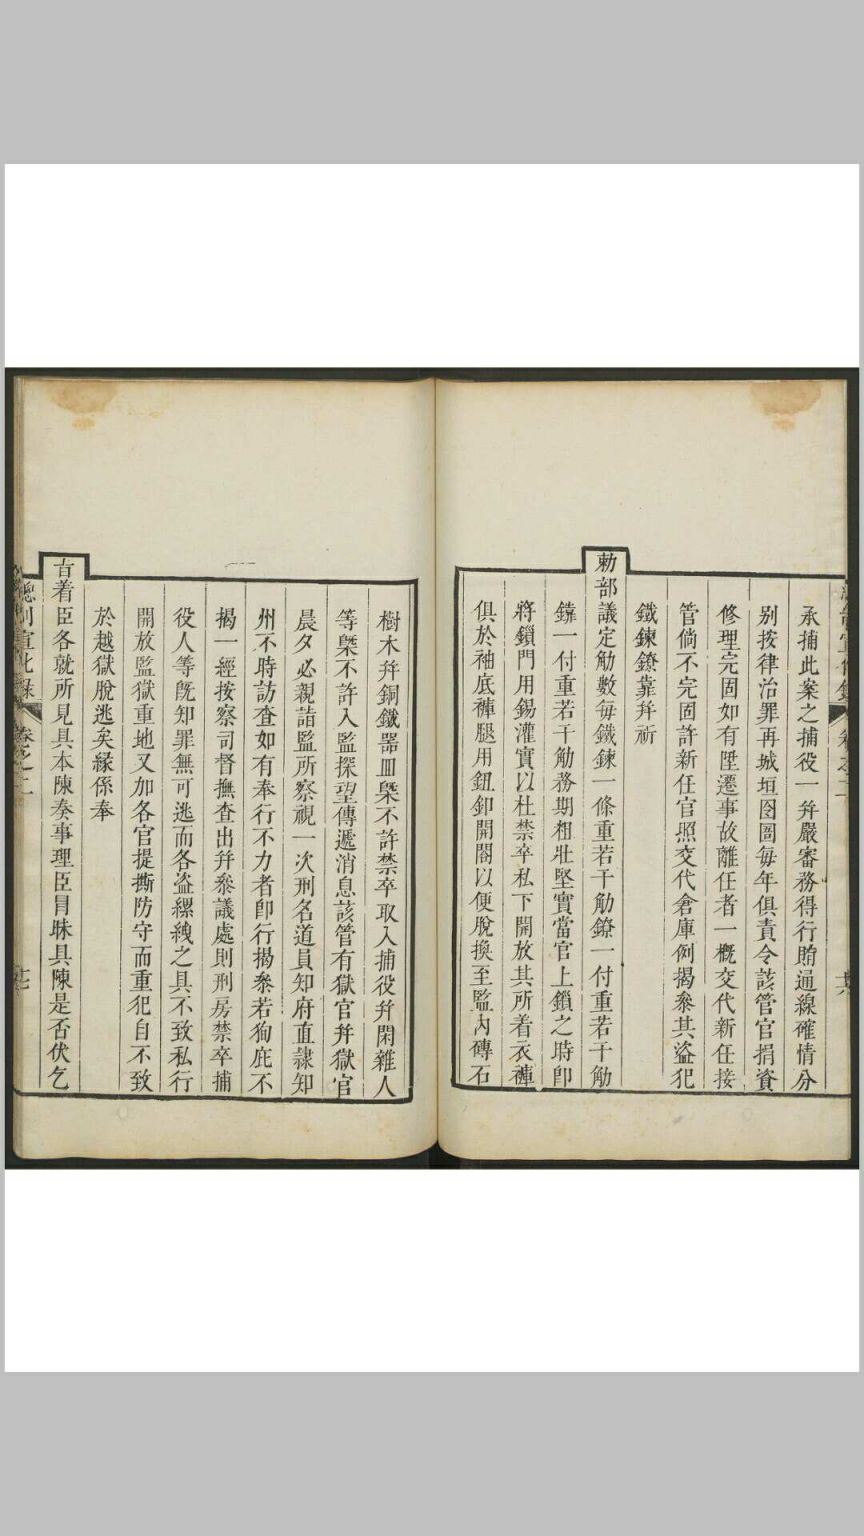 承捕此案之捕役一并嚴審務得行賄通線確情分
别按律治罪再城垣囹圄每年俱責令該管官捐資
修理完固如有陞遷事故離任者一概交代新任接
管倘不完固許新任官照交代倉庫例揭叅其盜犯
鐵鍊鐐靠并祈
勅部議定觔數每鐵鍊一條重若干觔鐐一付重若干觔
鐽一付重若干觔務期粗壯堅實當官上鎖之時卽
將鎖門用錫灌實以杜禁卒私下開放其所着衣褲
俱於袖底褲腿用鈕釦開閤以便脫換至監內磚石
樹木并銅鐵器皿槩不許禁卒取入捕役并閑雜人
等槩不許入監探望傳遞消息該管有獄官并獄官
晨夕必親詣監所察視一次刑名道員知府直隷知
州不時訪查如有奉行不力者卽行揭叅若狥庇不
揭一經按察司督撫查出并叅議處則刑房禁卒捕
役人等旣知罪無可逃而各盜縲絏之具不致私行
開放監獄重地又加各官提撕防守而重犯自不致
於越獄脫逃矣緣係奉
旨着臣各就所見具本陳奏事理臣冐昧具陳是否伏乞